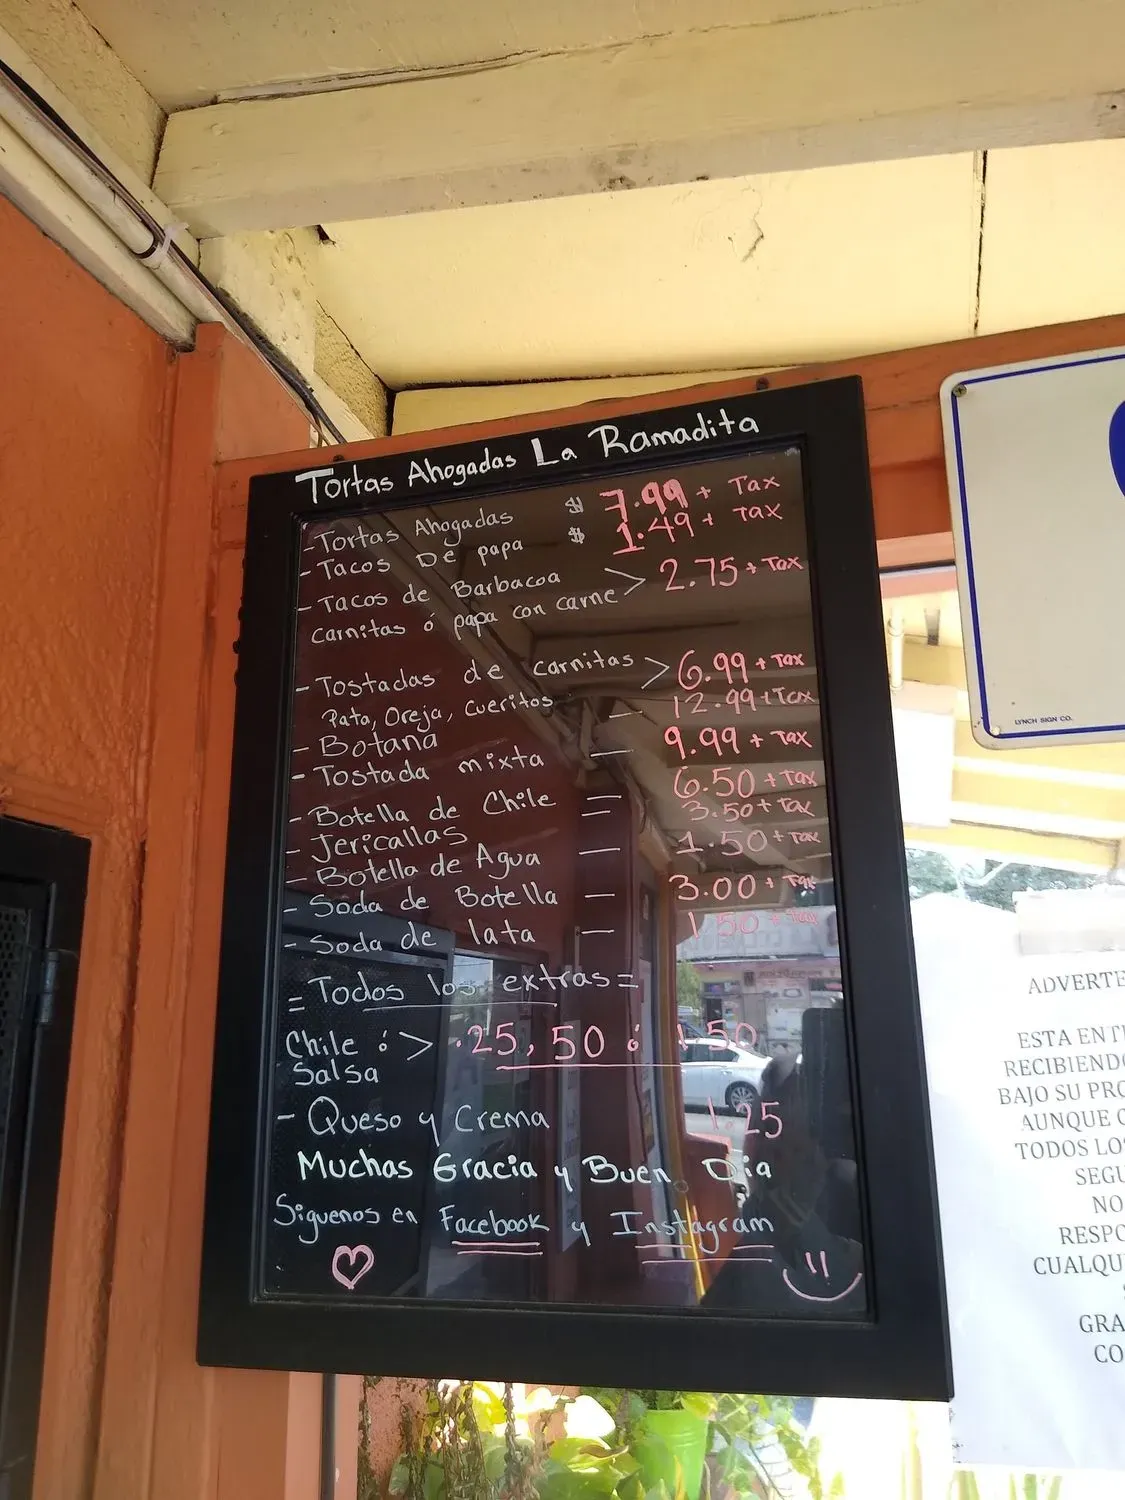 Tortas Ahogadas La Ramadita
- Tortas Ahogadas $ 7.99 + Tax
- Tacos De papa $ 1.49 + Tax
- Tacos de Barbacoa > 2.75 + Tax
Carnitas ó papa con carne
- Tostadas de carnitas > 6.99 + Tax
Pata, Oreja, Cueritos
- Botana — 12.99 + Tax
- Tostada mixta — 9.99 + Tax
- Botella de Chile = 6.50 + Tax
- Jericallas 3.50 + Tax
- Botella de Agua — 1.50 + Tax
- Soda de Botella — 3.00 + Tax
- Soda de lata — 1.50 + Tax
= Todos los extras =
Chile ó > .25, 50 ó 1.50
Salsa
- Queso y Crema 1.25
Muchas Gracia y Buen Dia
Siguenos en Facebook y Instagram
LYNCH SIGN CO.
ADVERTE
ESTA ENT
RECIBIENDO
BAJO SU PRO
AUNQUE
TODOS LO
SEGU
NO
RESPO
CUALQU
GRA
CO